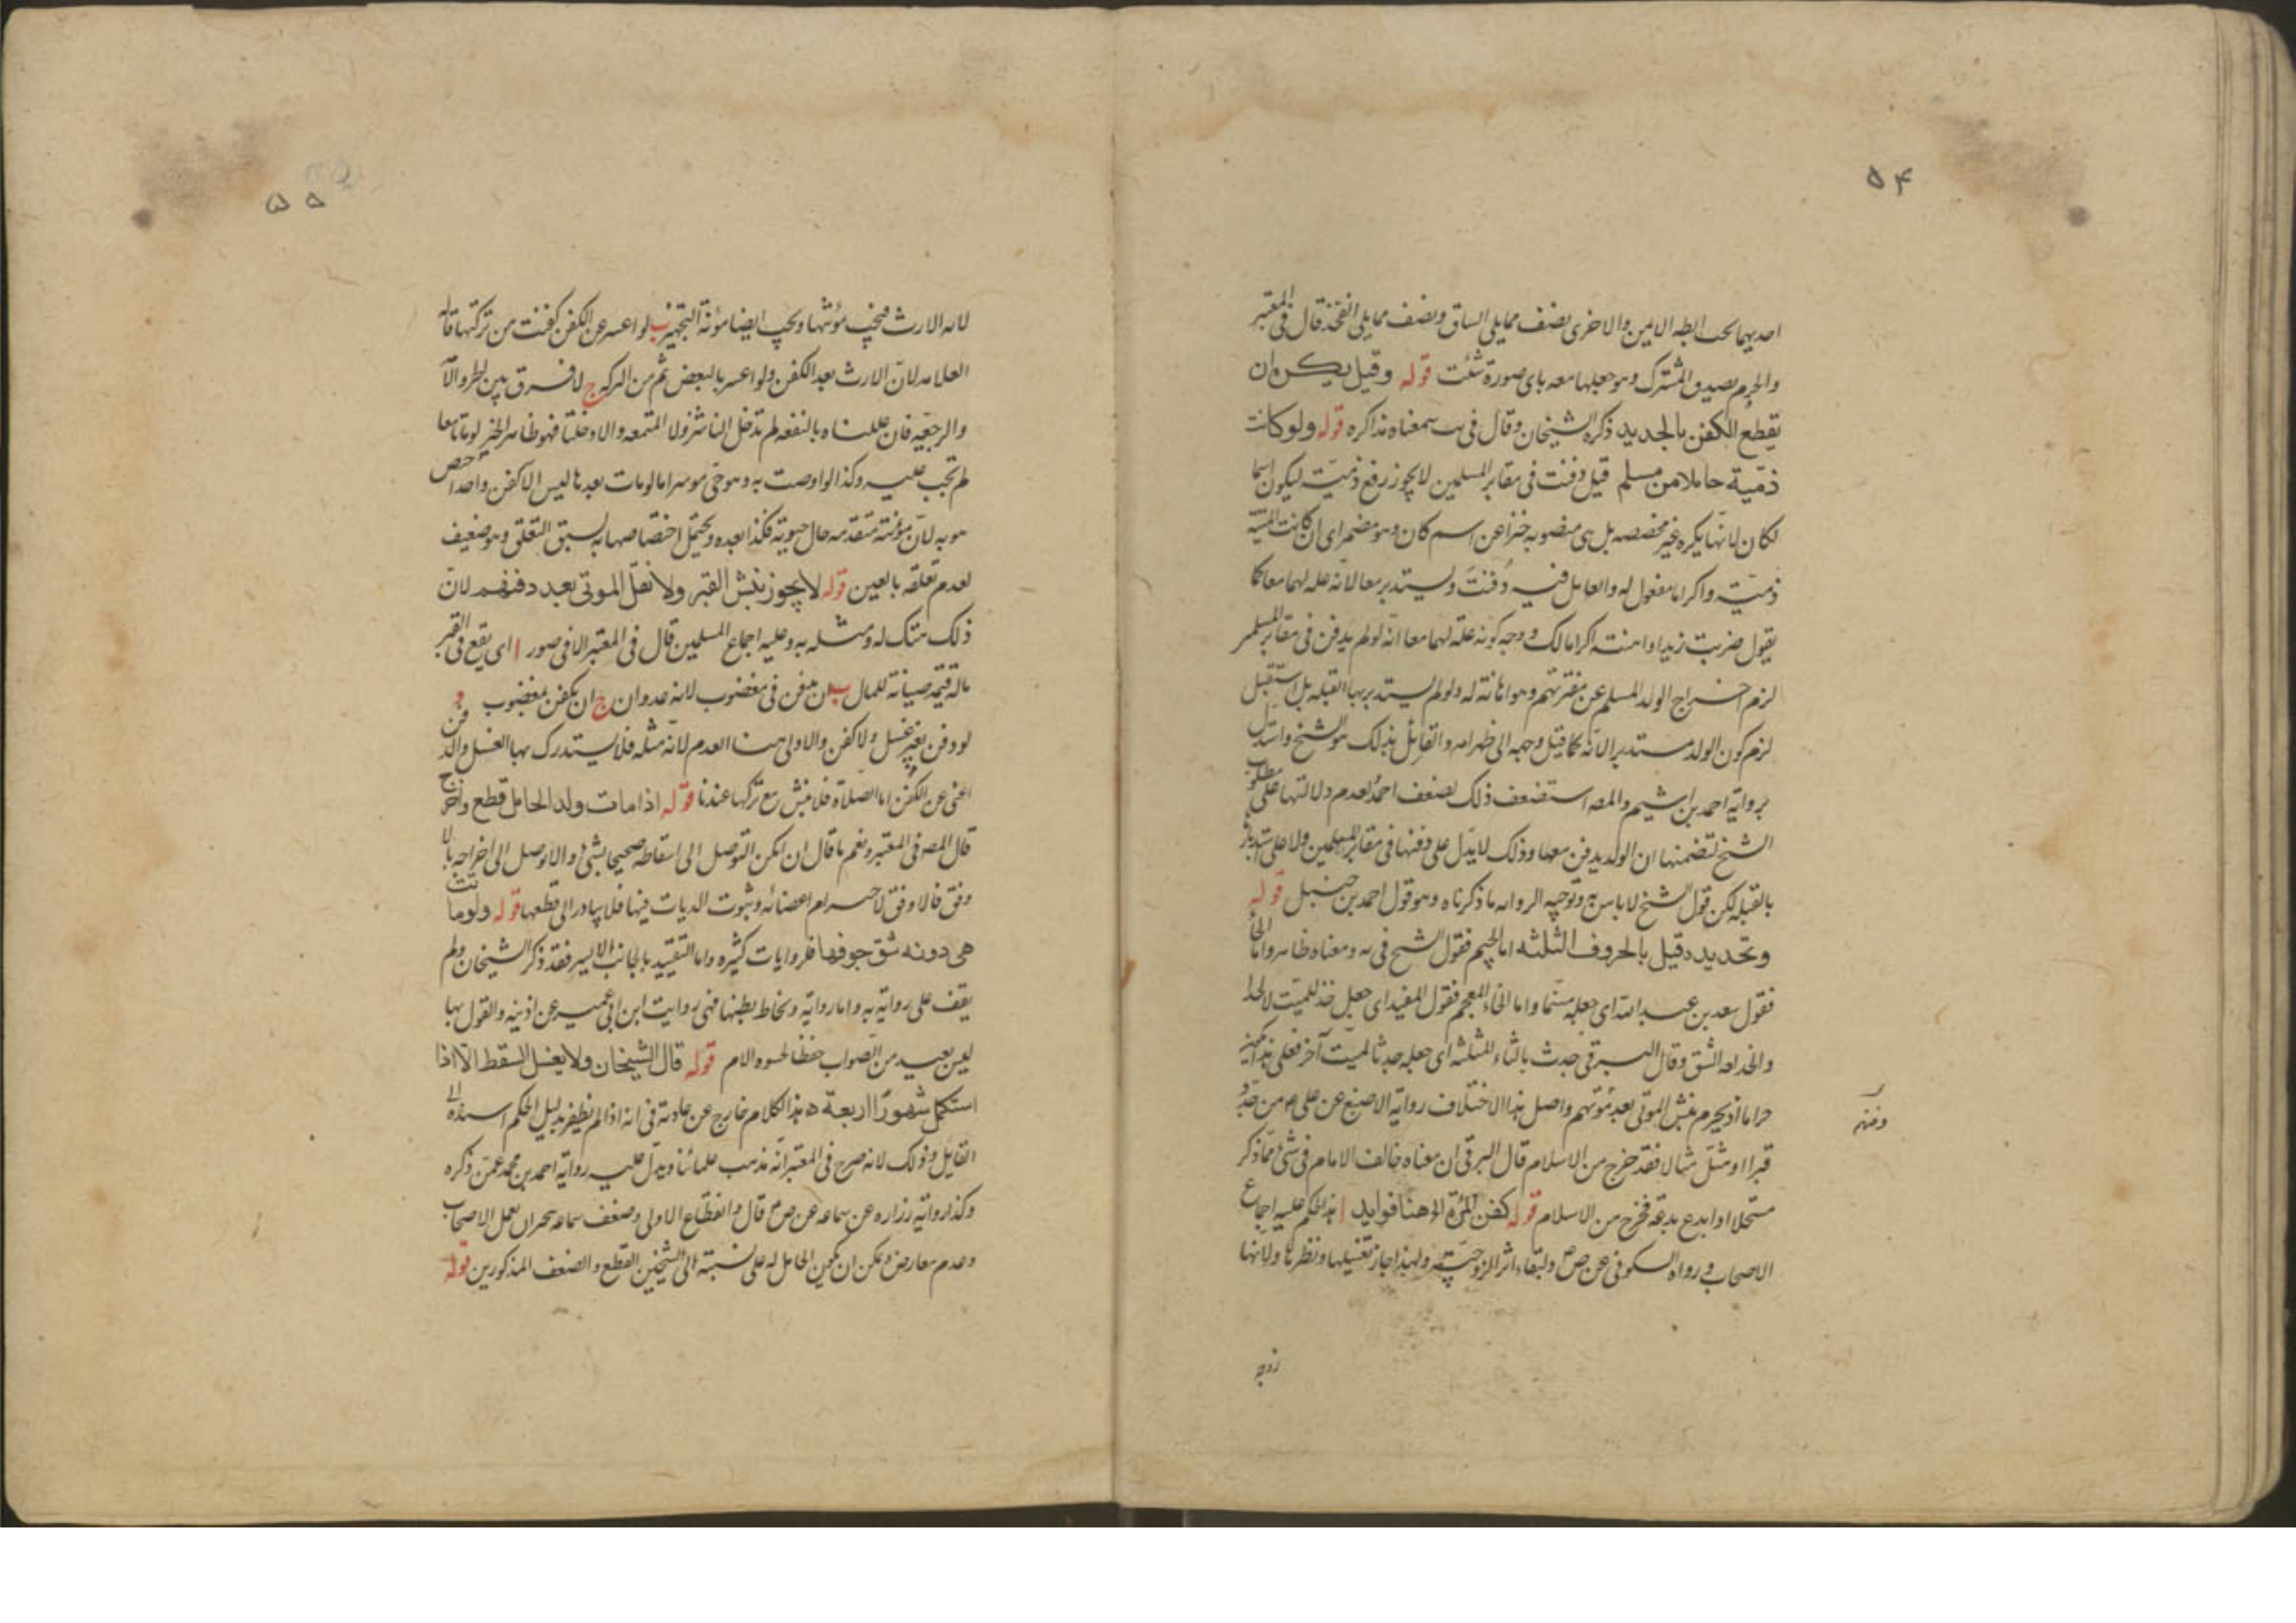 ۵۴
احديهما تحت ابطه الايمن والاخرى نصف مما يلى الساق ونصف مما يلى الفخذ قال فى المعتبر
والجزم بصدق المشترك وهو جعلها معه باى صورة شئت قوله وقيل يكره ان
يقطع الكفن بالجديد ذكره الشيخان وقال فى يب سمعناه مذاكرة قوله ولو كانت
ذمّية حاملا من مسلم قيل دفنت فى مقابر المسلمين لا يجوز رفع ذميّة ليكون اسما
لكان لانها نكره غير مخصصه بل هى منصوبه خبرا عن اسم كان وهو مضمر اى ان كانت الميّته
ذميّة واكراما مفعول له والعامل فيه دُفنت ويستدبر معا لانّه علة لهما معا كما
يقول ضربت زيدا واهنته اكراما لك ووجه كونه علّة لهما معا انّه لو لم يدفن فى مقابر المسلمين
لزم اخراج الولد المسلم عن مقبرتهم وهو اهانة له ولو لم يستدبر بها القبله بل استقبل
لزم كون الولد مستدبرا لانّه كما قيل وجهه الى ظهر امه والقائل بذلك هو الشيخ واستدلّ
برواية احمد بن اشيم والمصه استضعف ذلك لضعف احمد ولعدم دلالتها على مطلوب
الشيخ لتضمنها ان الولد يدفن معها وذلك لا يدلّ على دفنها فى مقابر المسلمين ولا على استدبار
بالقبله لكن قول الشيخ لا باس به وتوجيه الروايه ما ذكرناه وهو قول احمد بن حنبل قوله
وتحديده قيل بالحروف الثلثه اما الجيم فقول الشيخ فى يه ومعناه ظاهر واما الحاء
فقول سعد بن عبد الله اى جعله مسنّما واما الخاء المعجم فقول المفيد اى جعل خدّ للميّت
والخد لغه الشق وقال البرقى جدث بالثاء المثلثه اى جعله جدثا لميّت آخر فعلى هذا يمكن
حراما اذ يحرم نبش الموتى بعد موتهم واصل هذا الاختلاف رواية الاصبغ عن على ع من جدّد
ودفنهم
قبرا او مثّل مثالا فقد خرج من الاسلام قال البرقى ان معناه خالف الامام فى شئ مما ذكر
مستحلا او ابدع بدعة فخرج من الاسلام قوله كفن المرأة الخ هنا فوايد ا هذا الحكم عليه اجماع
الاصحاب ورواه السكونى عن ص ع ولبقاء اثر الزوجيّة ولهذا جاز تغسيلها ونظرها ولانها
زوجة
۵۵
لآيه الارث فتجب مؤنتها ويجب ايضا مؤنة التجهيز ب لو اعسر عن الكفن كفنت من تركتها قاله
العلامه لانّ الارث بعد الكفن ولو اعسر بالبعض تمّ من التركه ج لا فرق بين الحرة والامة
والرجعيّة فان عللناه بالنفقه لم تدخل الناشز ولا المتمتعه والا دخلتا فهو ظاهر الخبر لو ماتا معا
لم تجب عليه وكذا لو اوصت به وهو حىّ موسرا ما لو مات بعدها ليس الا كفن واحد اختص
هو به لانّ مؤنته متقدّمه حال حيوته فكذا بعده ويحتمل اختصاصها به لسبق التعلق وهو ضعيف
لعدم تعلقه بالعين قوله لا يجوز نبش القبر ولا نقل الموتى بعد دفنهم لانّ
ذلك هتك له ومثله به وعليه اجماع المسلمين قال فى المعتبر الا فى صور ا اى يقع فى القبر
ماله قيمة صيانة للمال ب ان يدفن فى مغصوب لانه عدوان ج ان يكفن بمغصوب د
لو دفن بغير غسل ولا كفن والاولى هنا العدم لانّه مثله فلا يستدرك بها الغسل والدفن
اغنى عن الكفن اما الصلاة فلا ينبش مع تركها عندنا قوله اذا مات ولد الحامل قطع واخرج
قال المصه فى المعتبر ونعم ما قال ان امكن التوصل الى اسقاطه صحيحا بشئ والا توصل الى اخراجه بالا
رفق فالارفق لاحترام اعضائه وثبوت الديات فيها فلا يبادر الى قطعها قوله ولو ماتت
هى دونه شق جوفها فلروايات كثيره واما التقييد بالجانب الايسر فقد ذكر الشيخان ولم
يقف على رواية به واما رواية وتخاط بطنها فهى روايت ابن ابى عمير عن اذينه والقول بها
ليس بعيد من الصواب حفظا الام قوله قال الشيخان ولا يغسل السقط الّا اذا
استكمل شهورًا اربعة ه هذا الكلام خارج عن عادته فى انه اذا لم يظفر بدليل الحكم اسنده الى
القايل وذلك لانه صرح فى المعتبر انّه مذهب علمائنا ويدلّ عليه رواية احمد بن محمد عمّن ذكره
وكذا رواية زراره عن سماعه عن ص ع قال وانقطاع الاولى وضعف سماعه ينجبران بعمل الاصحاب
وعدم معارض ويمكن ان يكون الحامل له على نسبته الى الشيخين القطع والضعف المذكورين قوله